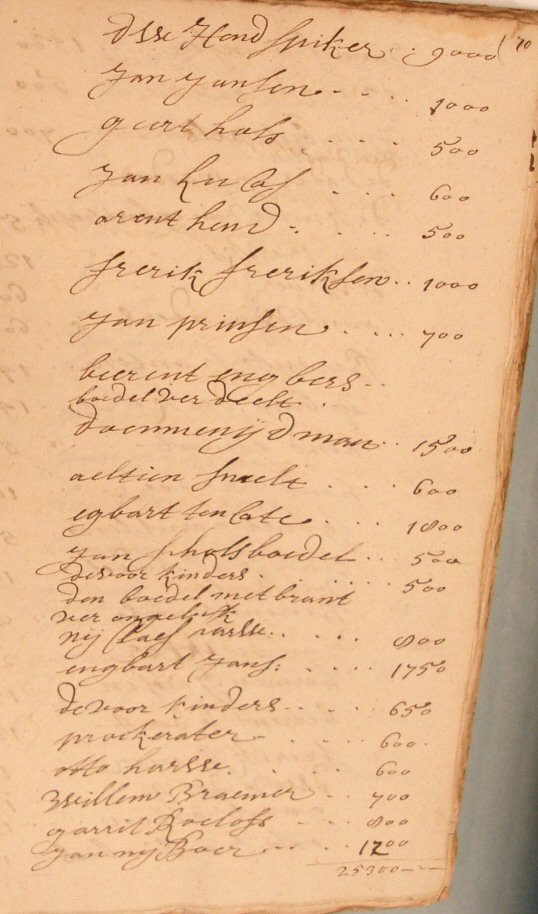 70
dsse Hend spiker . . 9000
Jan Jansen . . . . 1000
geert hols . . . . 500
Jan Lucas . . . . 600
arent hend . . . . 500
frerik freriksen . . 1000
Jan prinsen . . . . 700
beerent engbers . .
boedel verdeelt .
doemenij dman . . 1500
aeltien smelt . . . . 600
egbart ten Cate . . . . 1800
Jan scholsboedel . . 500
de voor kinders . . . . . 500
den boedel met brant
ver ongeluk
nij Claes harsse . . . . 800
engbart Jans: . . . . 1750
de voor kinders . . . . 650
prockerater . . . . 600
otto harsse . . . . 600
Willem Braemer . . 700
garrit Roelofs . . . . 800
Jan nij Boer . . . . 1200
25300